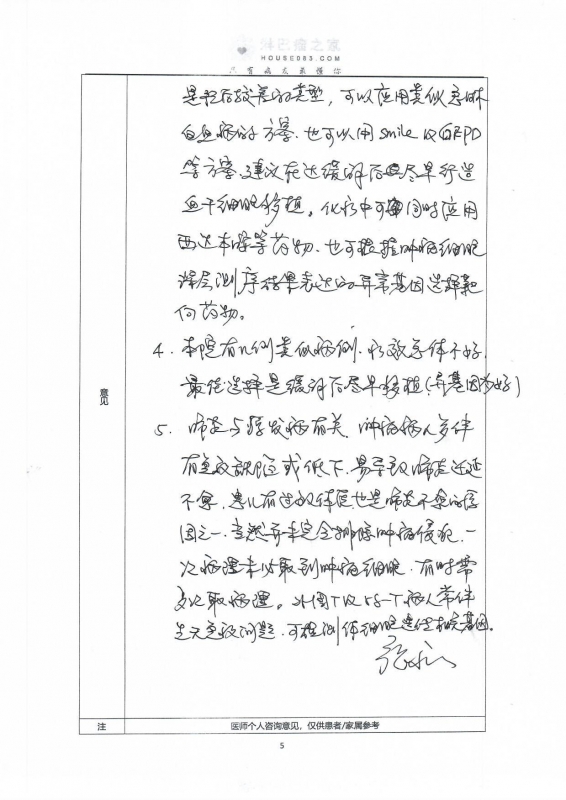 淋巴瘤之家
HOUSE083.COM
只有病友最懂你
是预后较差的类型，可以应用类似急淋
白血病的方案，也可以用smile以
等方案，建议在达缓解后尽早行造
血干细胞移植，化疗中可同时应用
西达本胺等药物，也可根据肿瘤细胞
深层测序结果表达的异常基因选择靶
向药物。
4、本院有几例类似病例，疗效总体不好，
最佳选择是缓解后尽早移植（异基因为好）
意见
5、肺炎与原发病有关，肿瘤病人多伴
有免疫缺陷或低下，易导致肺炎迁延
不愈，患儿有过敏体质也是肺炎不愈的原
因之一，当然并未完全排除肿瘤侵犯，一
次病理未必取到肿瘤细胞，有时需
多次取病理。外周T以病人常伴
先天免疫问题，可检测体细胞遗传相关基因。
注
医师个人咨询意见，仅供患者/家属参考
5